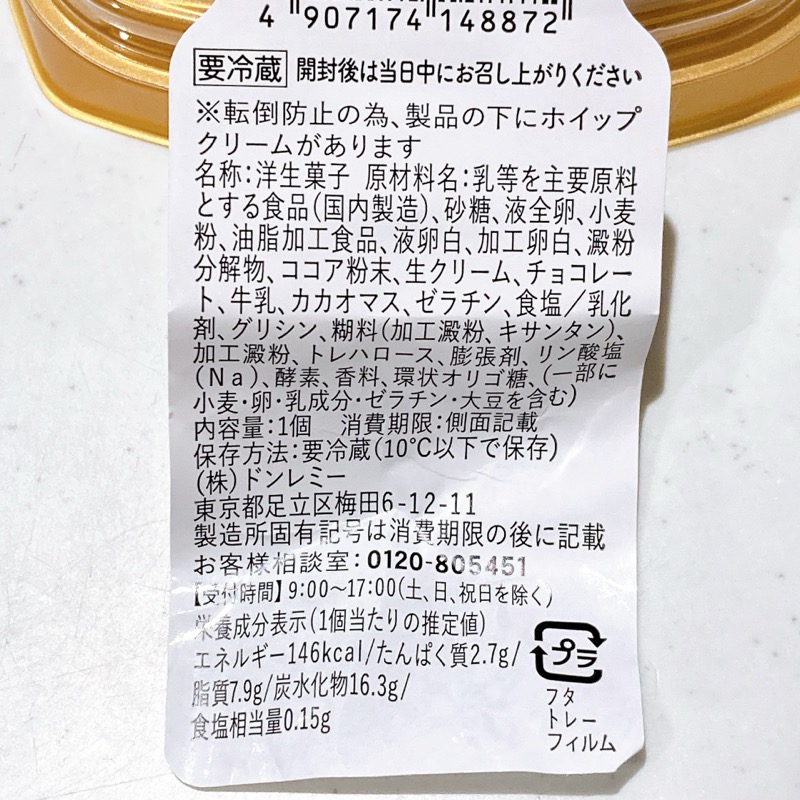 4 907174 148872
要冷蔵 開封後は当日中にお召し上がりください
※転倒防止の為、製品の下にホイップ
クリームがあります
名称:洋生菓子 原材料名:乳等を主要原料
とする食品(国内製造)、砂糖、液全卵、小麦
粉、油脂加工食品、液卵白、加工卵白、澱粉
分解物、ココア粉末、生クリーム、チョコレー
ト、牛乳、カカオマス、ゼラチン、食塩/乳化
剤、グリシン、糊料(加工澱粉、キサンタン)、
加工澱粉、トレハロース、膨張剤、リン酸塩
(Na)、酵素、香料、環状オリゴ糖、(一部に
小麦・卵・乳成分・ゼラチン・大豆を含む)
内容量:1個 消費期限:側面記載
保存方法:要冷蔵(10℃以下で保存)
(株)ドンレミー
東京都足立区梅田6-12-11
製造所固有記号は消費期限の後に記載
お客様相談室:0120-805451
【受付時間】9:00〜17:00(土、日、祝日を除く)
栄養成分表示(1個当たりの推定値)
エネルギー146kcal/たんぱく質2.7g/
脂質7.9g/炭水化物16.3g/
食塩相当量0.15g
プラ
フタ
トレー
フィルム